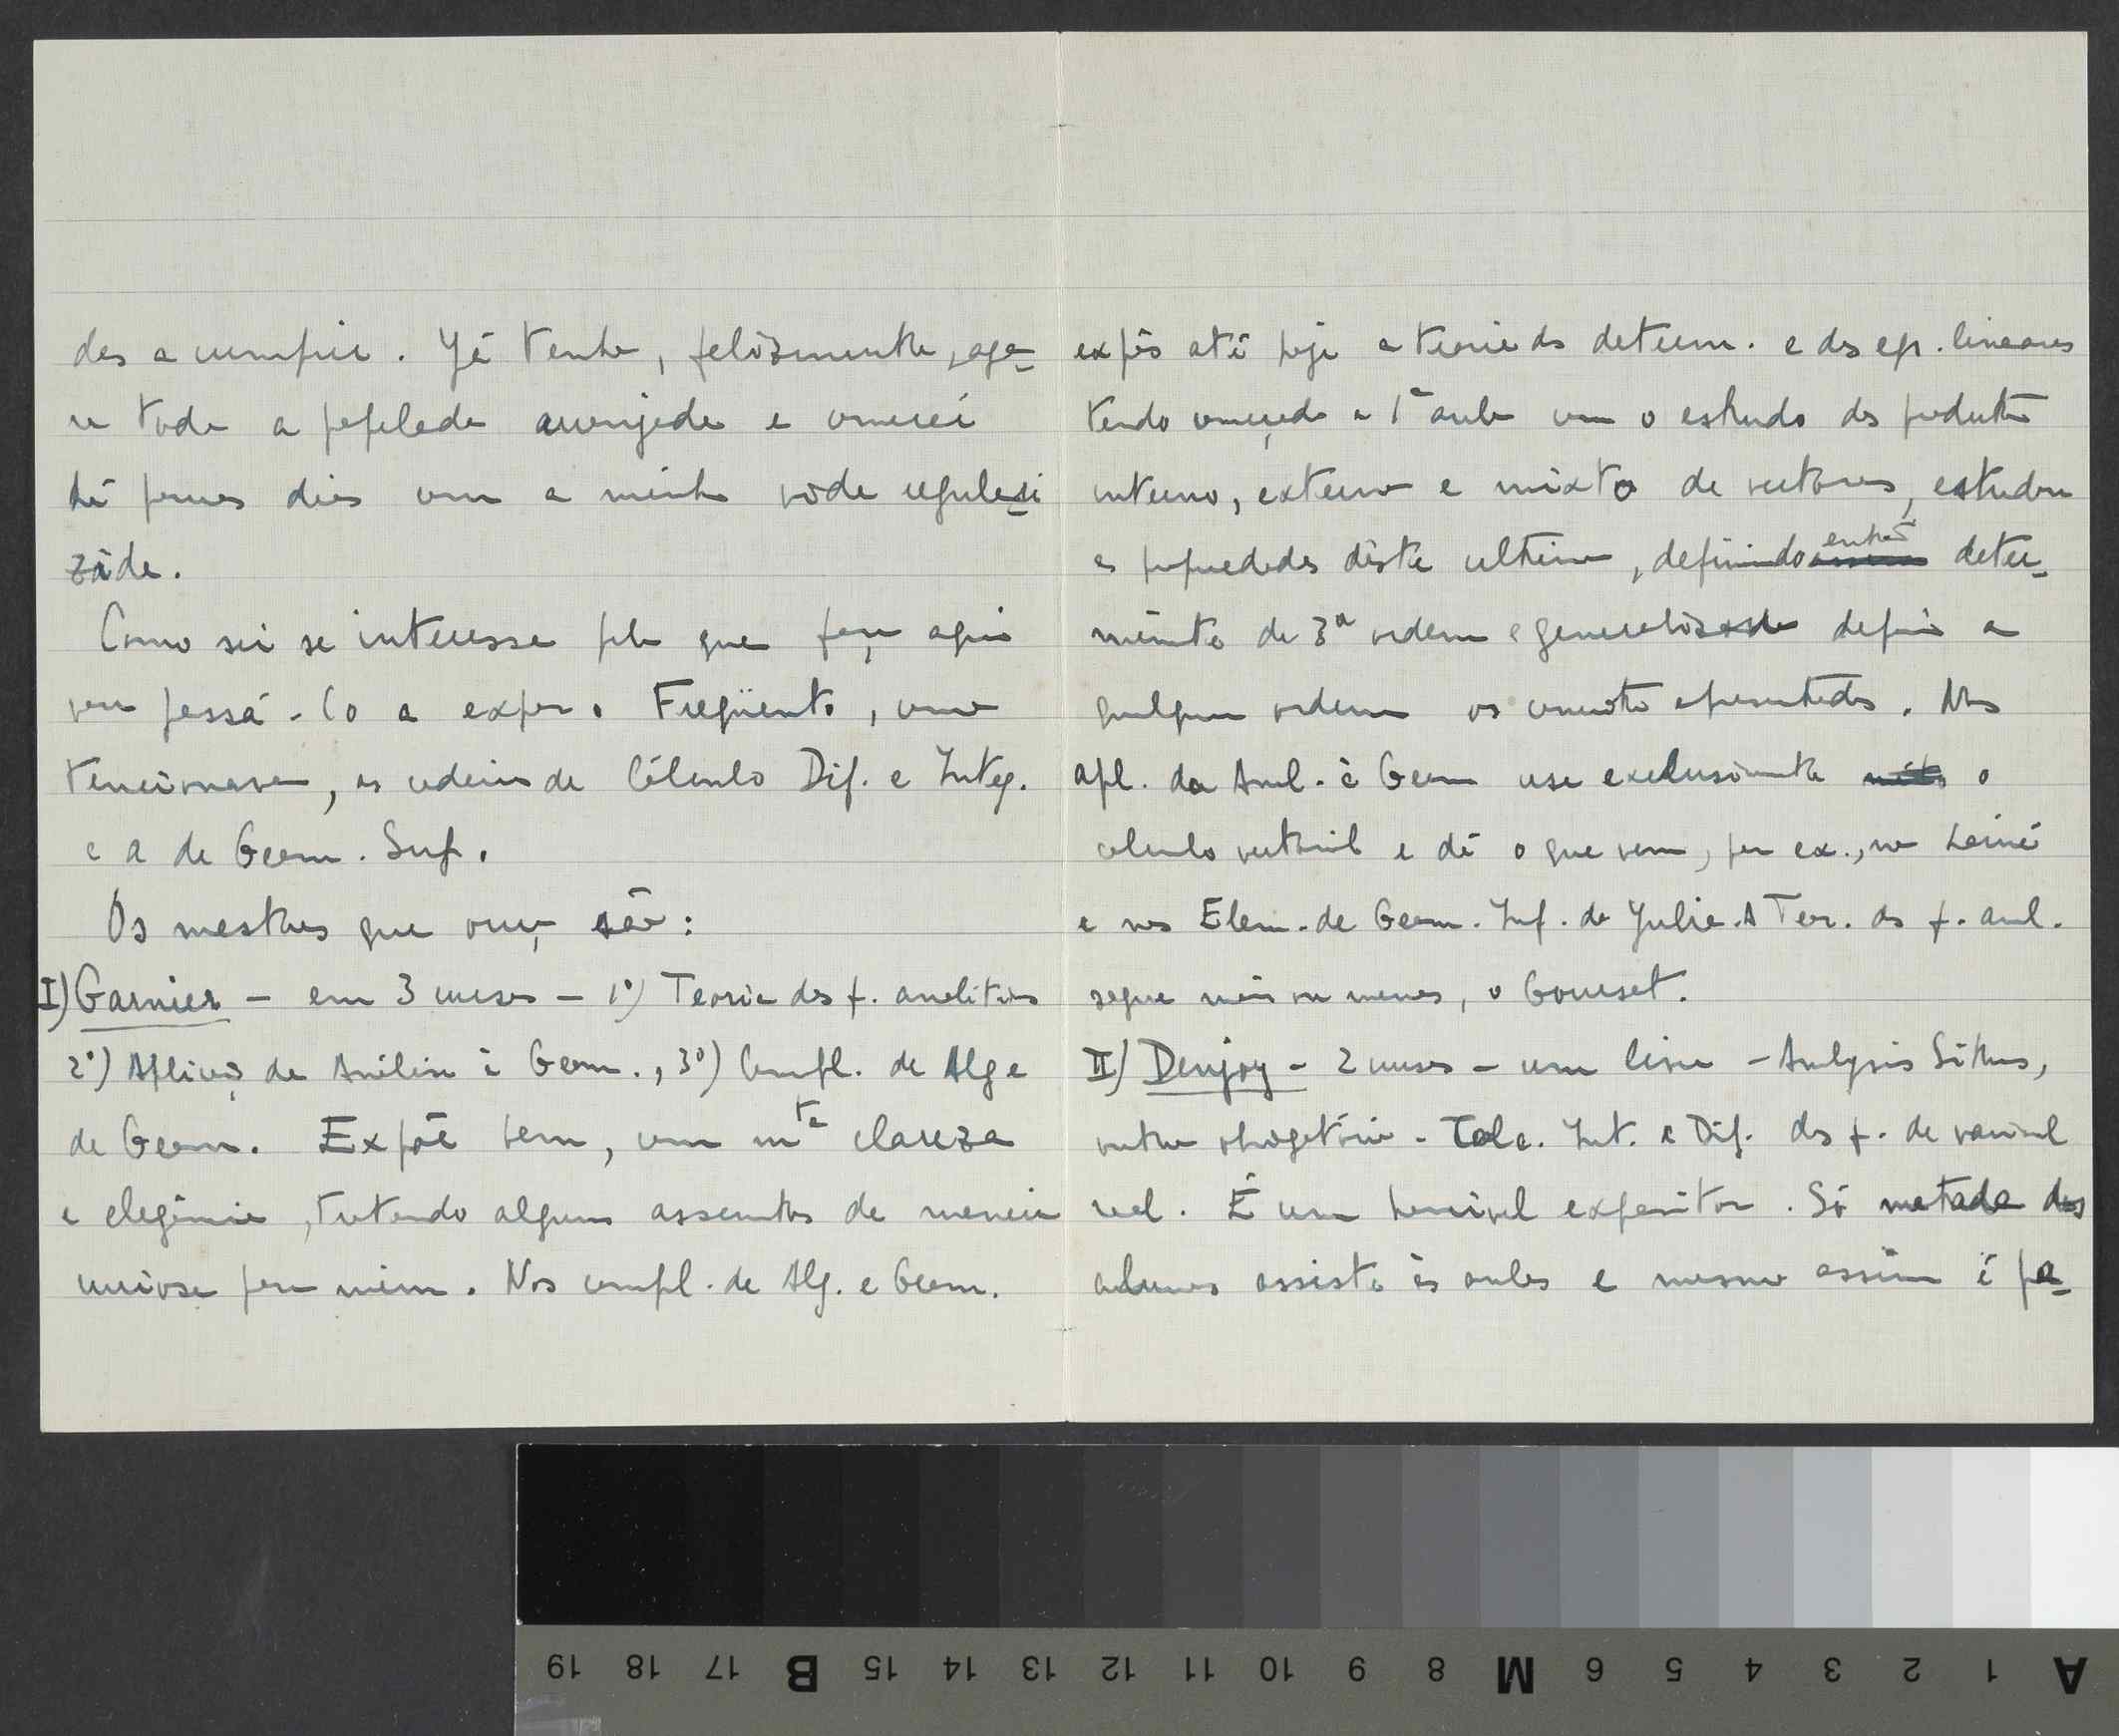 des a cumprir. Já tenho, felizmente, ago-
ra toda a papelada arranjada e comecei
há poucos dias com a minha vida regulari
zada.
Como sei se interessa pelo que faço aqui
vou passá-lo a expor. Freqüento, como
tencionava, as cadeiras de Cálculo Dif. e Integ.
e a de Geom. Sup.
Os mestres que ouço são:
I) Garnier - em 3 cursos - 1º) Teoria das f. analíticas
2º) Aplicaç da Análise à Geom., 3º) Compl. de Alg e
de Geom. Expõe bem, com mta clareza
e elegância, tratando alguns assuntos de maneira
curiosa para mim. Nos compl. de Alg. e Geom.
expôs até hoje a teoria ds determ. e das eq. lineares
tendo começado a 1ª aula com o estudo dos produtos
interno, externo e mixto de vectores, estudou
as propriedades dêste ultimo, definindo então deter-
minante de 3ª ordem e generalizando depois a
qualquer ordem os conceitos apresentados. Nas
apl. da Anal. à Geom usa exclusivamente o
calculo vectorial e dá o que vem, por ex., no
e nos Elem. de Geom. Inf. de Julia. A Teor. das f. anal.
segue mais ou menos, o Goursat.
II) Denjoy - 2 cursos - um livre - Analysis Situs,
outro obrigatório - Calc. Int. e Dif. das f. de variavel
real. É um horrivel expositor. Só metade dos
alunos assiste às aulas e mesmo assim é pa-
A 1 2 3 4 5 6 M 8 9 10 11 12 13 14 15 B 17 18 19